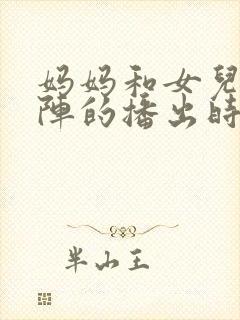 妈妈和女兒
陣的播出時
半山王